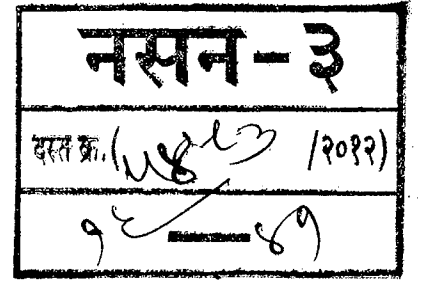 नसन - ३
दस्त क्र. ( /२०१२)
१८ ४१